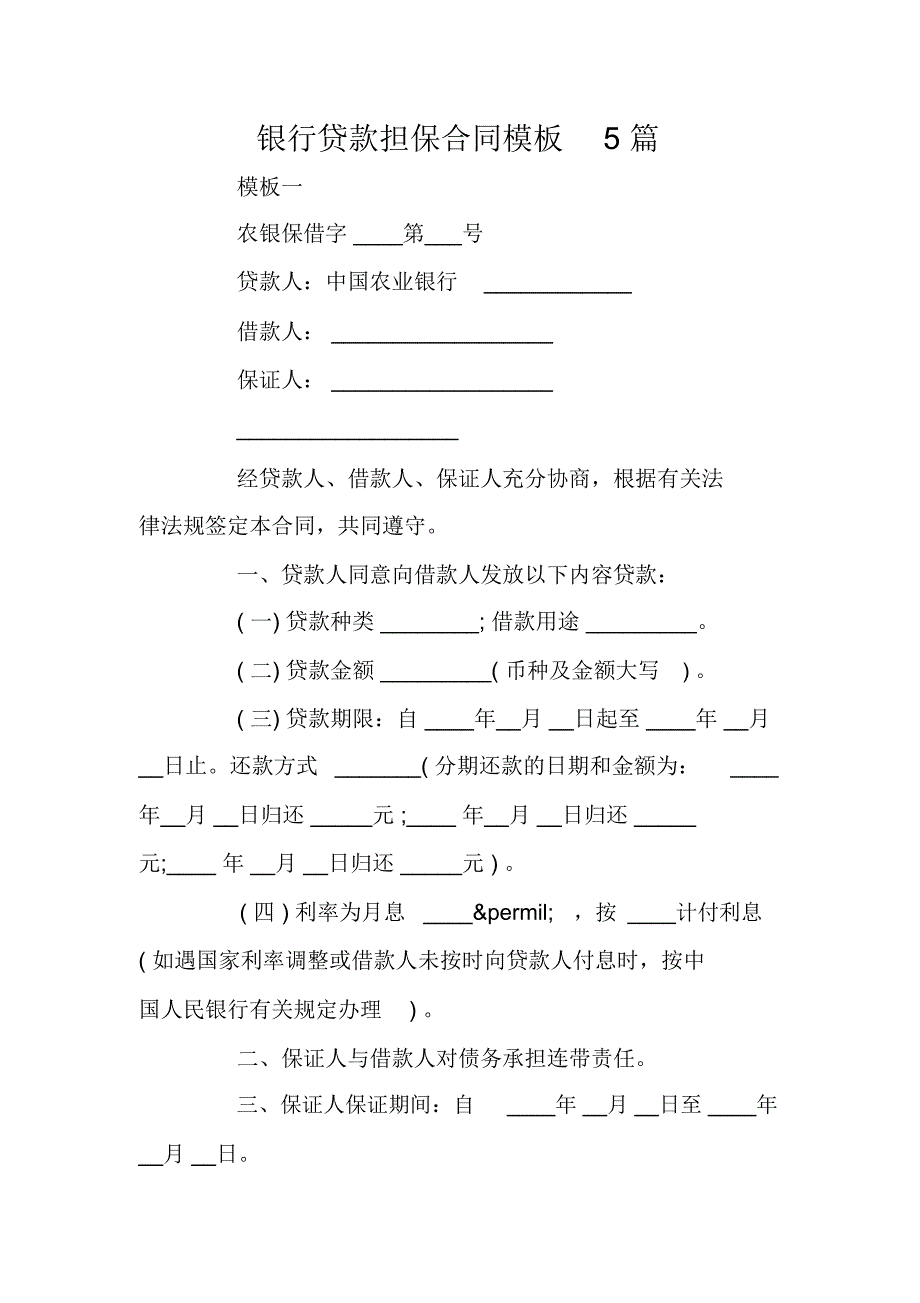 银行贷款担保合同模板 5 篇
模板一
农银保借字 ____第___号
贷款人：中国农业银行 ____________
借款人： __________________
保证人： __________________
__________________
经贷款人、借款人、保证人充分协商，根据有关法
律法规签定本合同，共同遵守。
一、贷款人同意向借款人发放以下内容贷款：
( 一) 贷款种类 ________; 借款用途 _________。
( 二) 贷款金额 _________( 币种及金额大写 ) 。
( 三) 贷款期限：自 ____年__月 __日起至 ____年 __月
__日止。还款方式 _______( 分期还款的日期和金额为： ____
年__月 __日归还 _____元 ;____ 年__月 __日归还 _____
元;____ 年 __月 __日归还 _____元 ) 。
( 四 ) 利率为月息 ____&permil; ，按 ____计付利息
( 如遇国家利率调整或借款人未按时向贷款人付息时，按中
国人民银行有关规定办理 ) 。
二、保证人与借款人对债务承担连带责任。
三、保证人保证期间：自 ____年 __月 __日至 ____年
__月 __日。